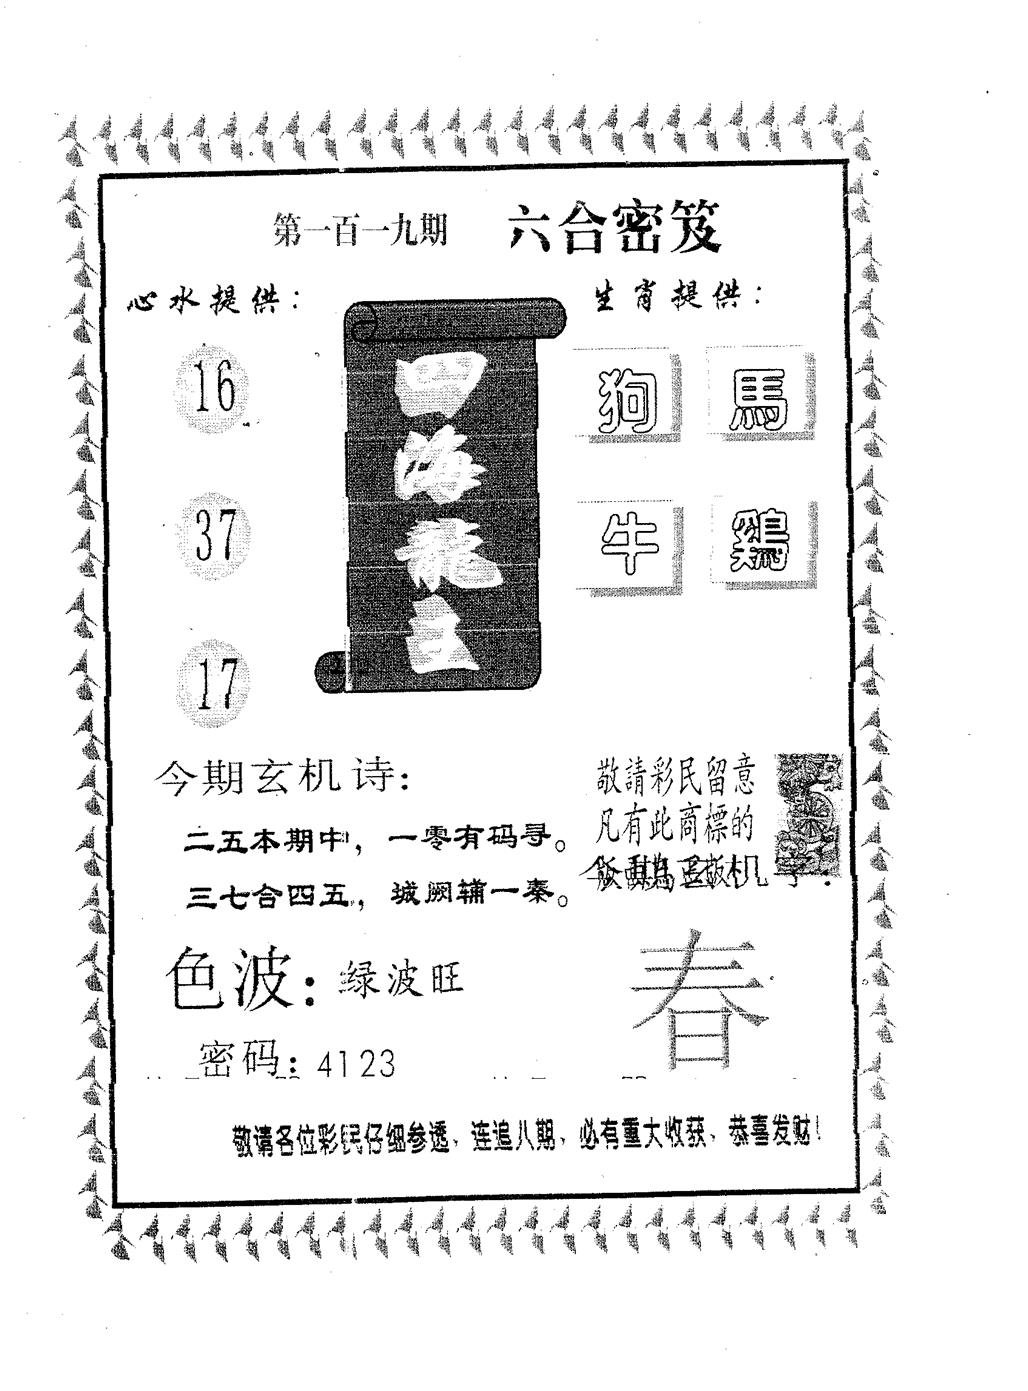 第一百一九期 六合密笈
心水提供：
生肖提供：
16
37
17
四海龍王
狗 馬
牛 鷄
今期玄机诗：
二五本期中，一零有码寻。
三七合四五，城阙辅一秦。
敬請彩民留意
凡有此商標的
春
色波：绿波旺
密码：4123
敬请各位彩民仔细参透、连追八期、必有重大收获、恭喜发财！